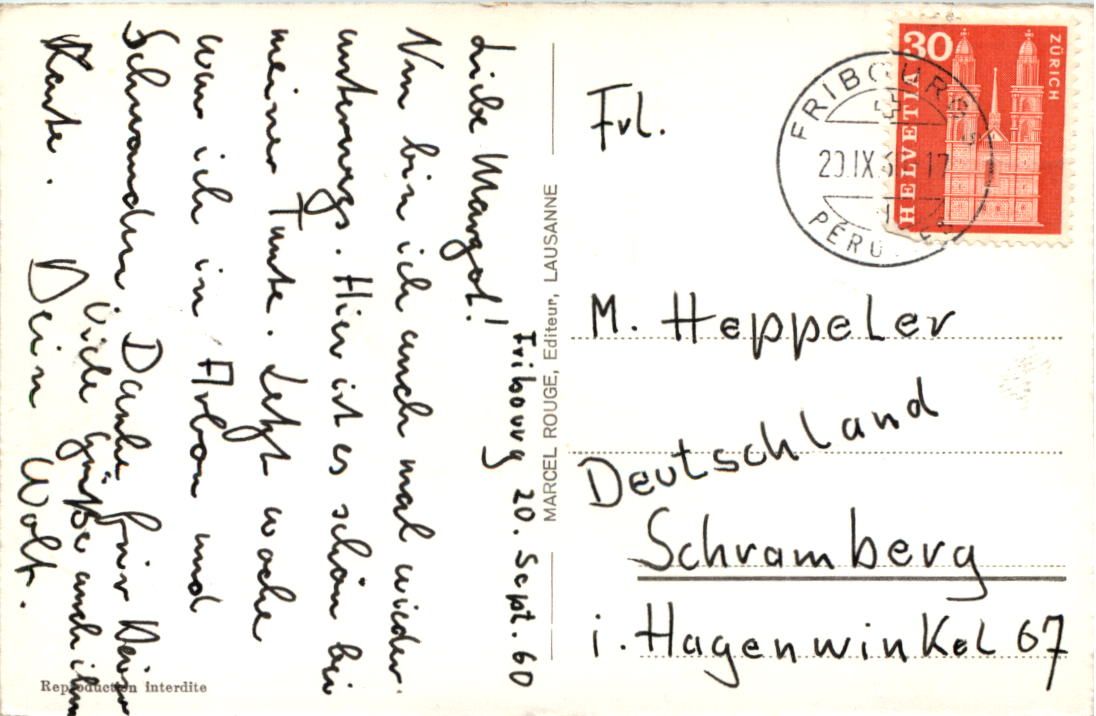 Fribourg 20. Sept. 60
Liebe Margot!
Nun bin ich auch mal wieder
unterwegs. Hier ist es schön bei
meiner Tante. Letzt woche
war ich in Arbon und
Schwanden. Danke für Deine
Karte. viele Grüße auch ihm
Dein Wolf.
Reproduction interdite
MARCEL ROUGE, Editeur, LAUSANNE
30
HELVETIA
ZÜRICH
FRIBOURG
20.IX.6 17
PÉROLLES
Frl.
M. Heppeler
Deutschland
Schramberg
i. Hagenwinkel 67